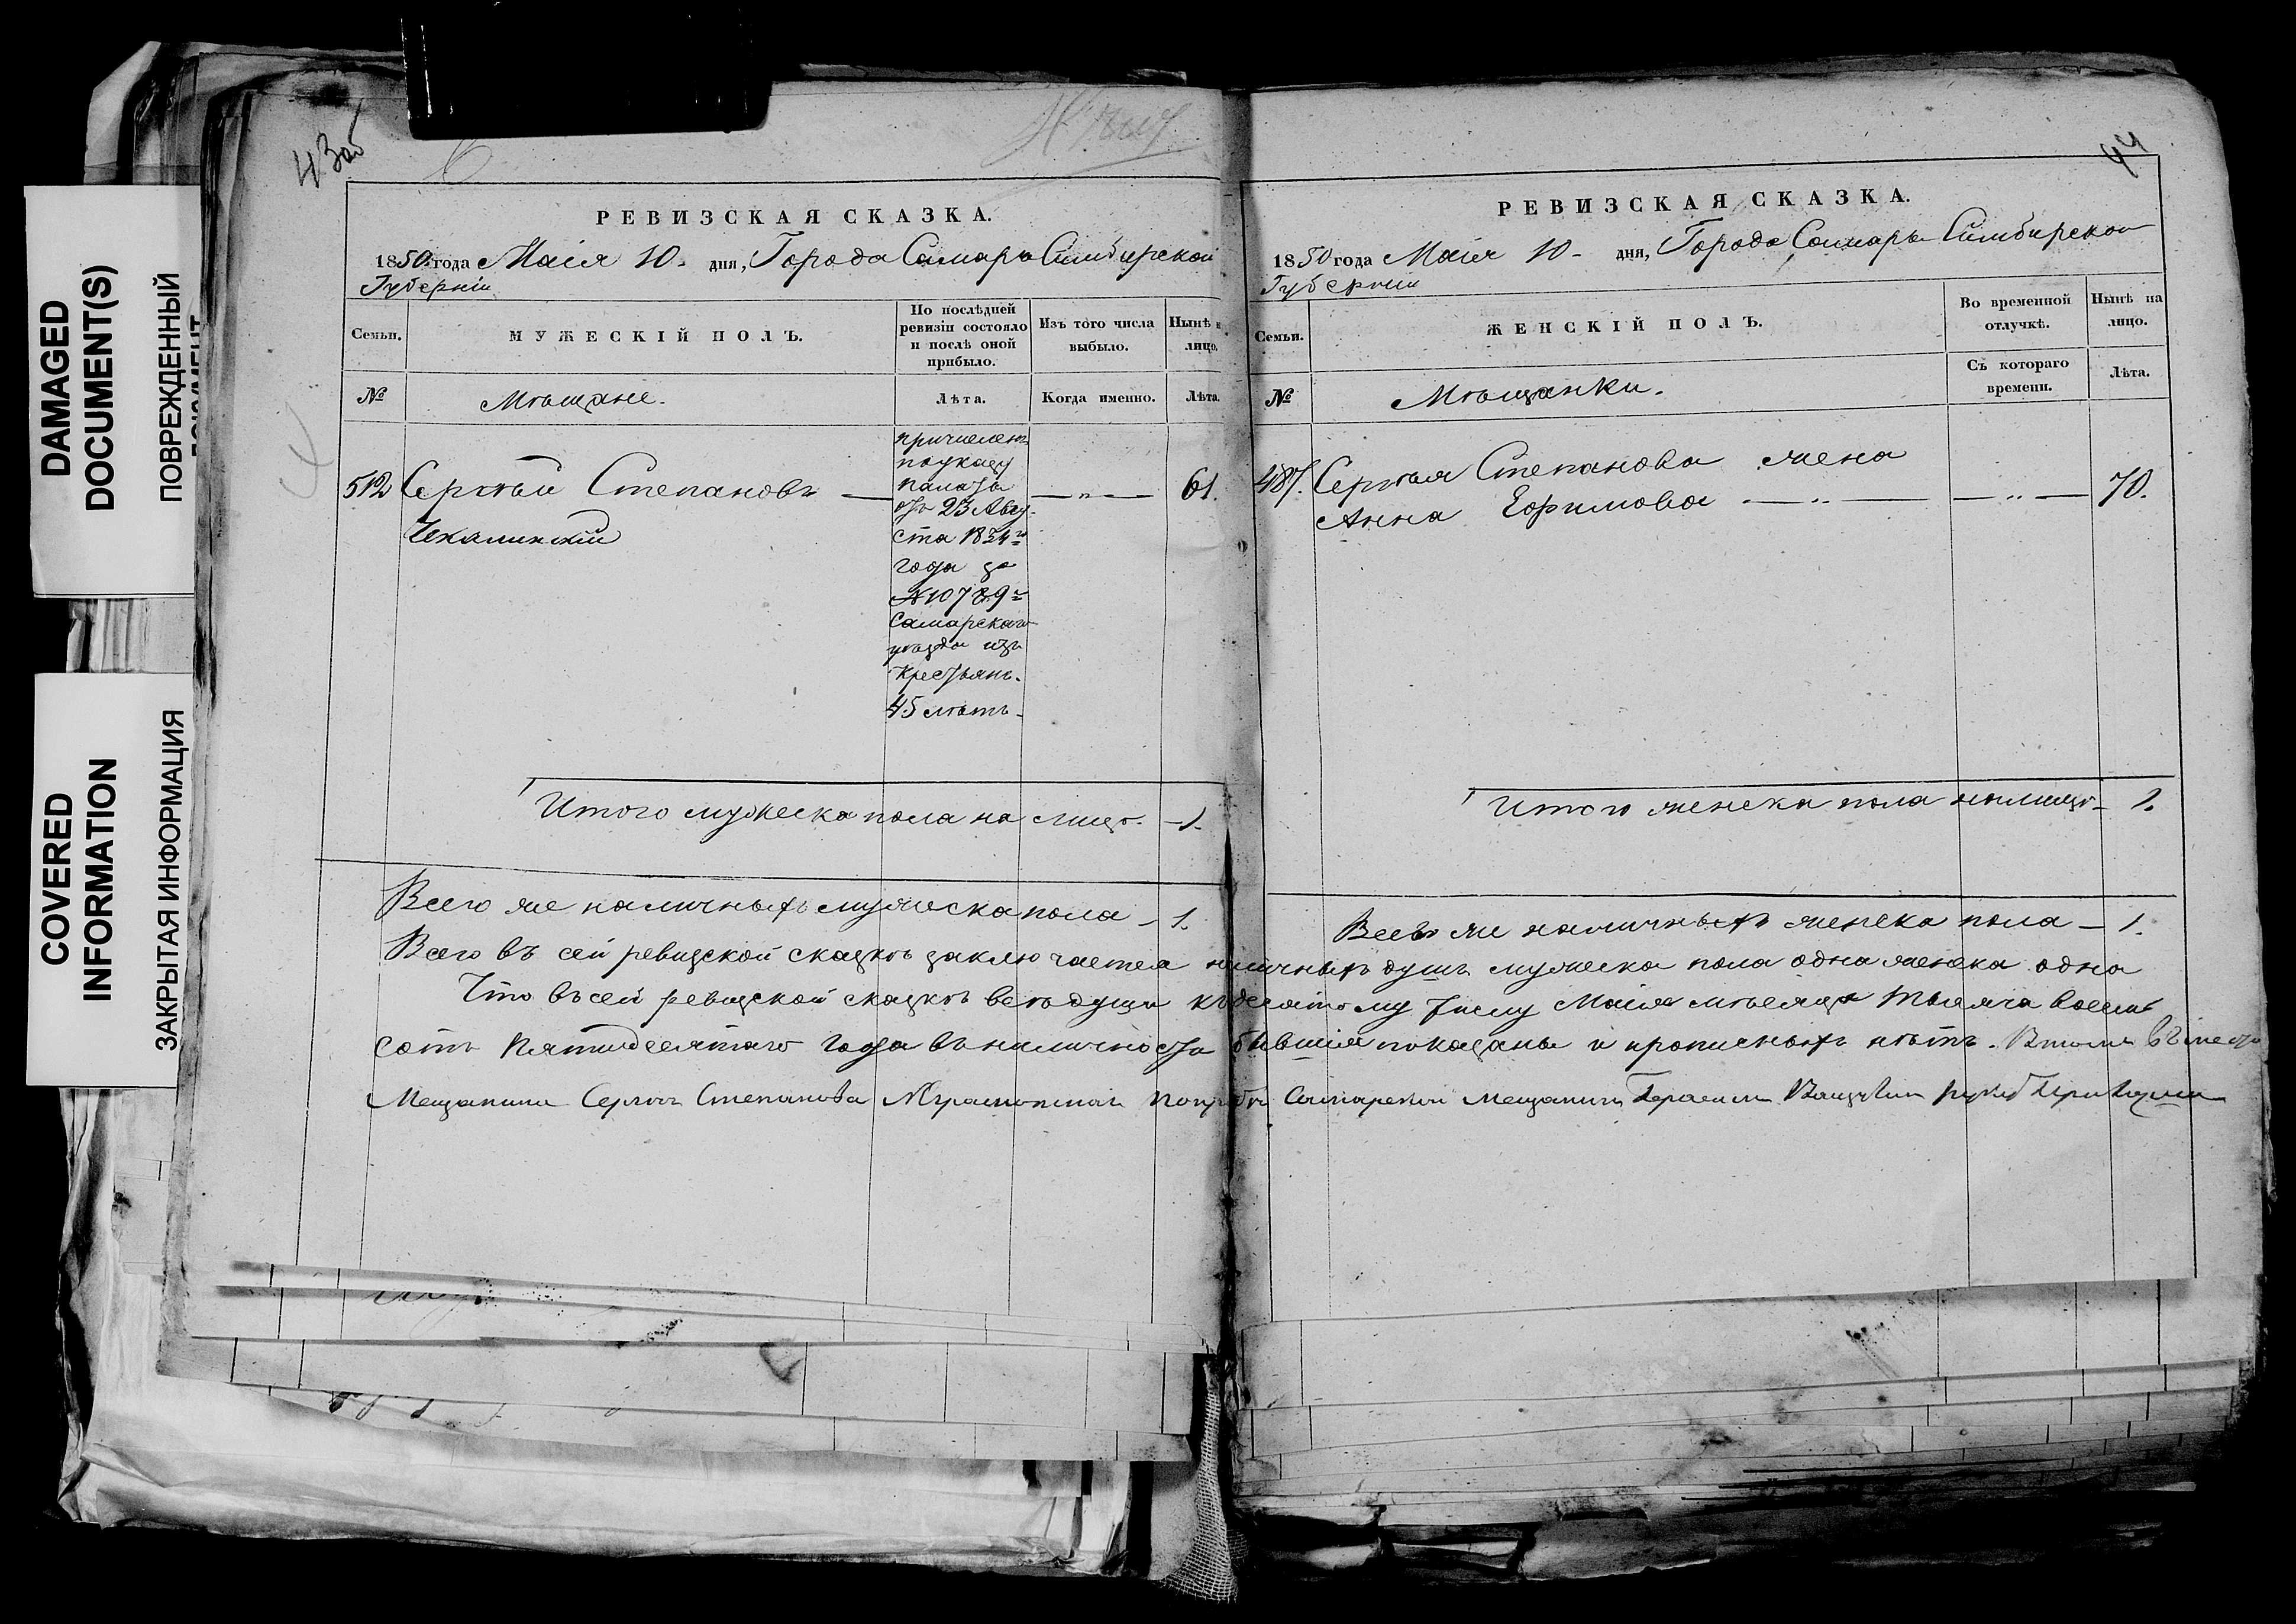 DAMAGED
DOCUMENT(S)
ПОВРЕЖДЕННЫЙ
COVERED
INFORMATION
ЗАКРЫТАЯ ИНФОРМАЦИЯ
43об
РЕВИЗСКАЯ СКАЗКА.
1850 года Маія 10. дня, Города Самары Симбирской
Губерніи
Семьи.
МУЖЕСКІЙ ПОЛЪ.
По послѣдней
ревизіи состояло
и послѣ оной
прибыло.
Изъ того числа
выбыло.
Нынѣ
лицо.
№
Мѣщане.
Лѣта.
Когда именно.
Лѣта.
512 Сергѣй Степановъ — 61.
Чекалинскій
причисленъ
по указу
палаты
отъ 23 Авгу-
ста 1834го
года за
№ 10789м
Самарскаго
уѣзда изъ
крестьянъ.
45 лѣтъ.
Итого мужеска пола на лицо. — 1.
Всего же наличныхъ мужеска пола — 1.
44
РЕВИЗСКАЯ СКАЗКА.
1850 года Маія 10 - дня, Города Самары Симбирской
Губерніи
Семьи.
ЖЕНСКІЙ ПОЛЪ.
Во временной
отлучкѣ.
Нынѣ на
лицо.
№
Мѣщанки.
Съ котораго
времени.
Лѣта.
487. Сергѣя Степанова жена
Анна Ефимова — „ — — „ — 70.
Итого женска пола на лицо — 1.
Всего же наличныхъ женска пола — 1.
Всего въ сей ревизской сказкѣ заключается наличныхъ душъ мужеска пола одна женска одна
Что въ сей ревизской сказкѣ всѣ души къ десятому числу Маія мѣсяца тысяча восемь
сотъ пятидесятаго года въ наличности бывшія показаны и прописныхъ нѣтъ. В томъ вместо
Мещанина Сергѣя Степанова Самарской мещанинъ